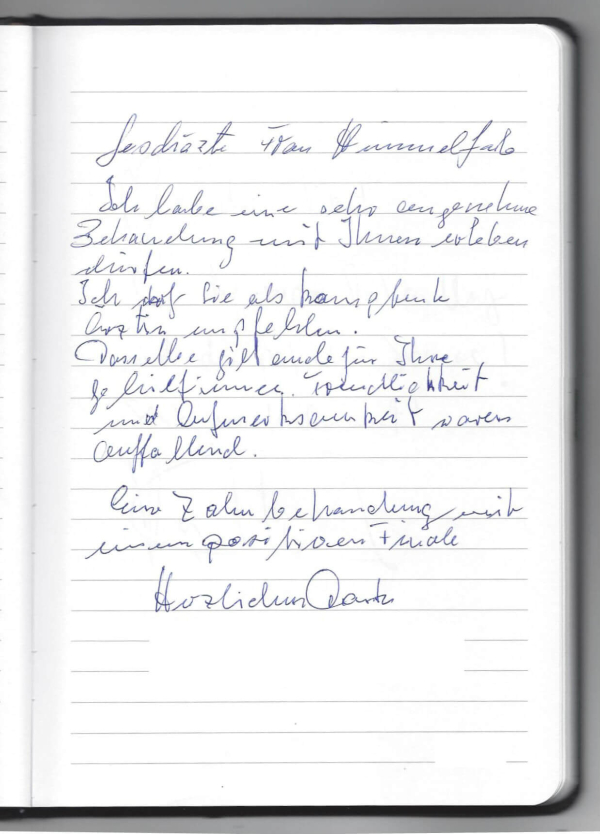 Geschäzte Frau Himmelfarb
Ich habe eine sehr angenehme
Behandlung mit Ihnen erleben
dürfen.
Ich Sie als
Ärztin empfehlen.
Dasselbe gilt auch für Ihre
gehilfinnen. Freundlichkeit
und Aufmerksamkeit waren
auffallend.
Eine Zahnbehandlung mit
einem positiven Finale
Herzlichen Dank